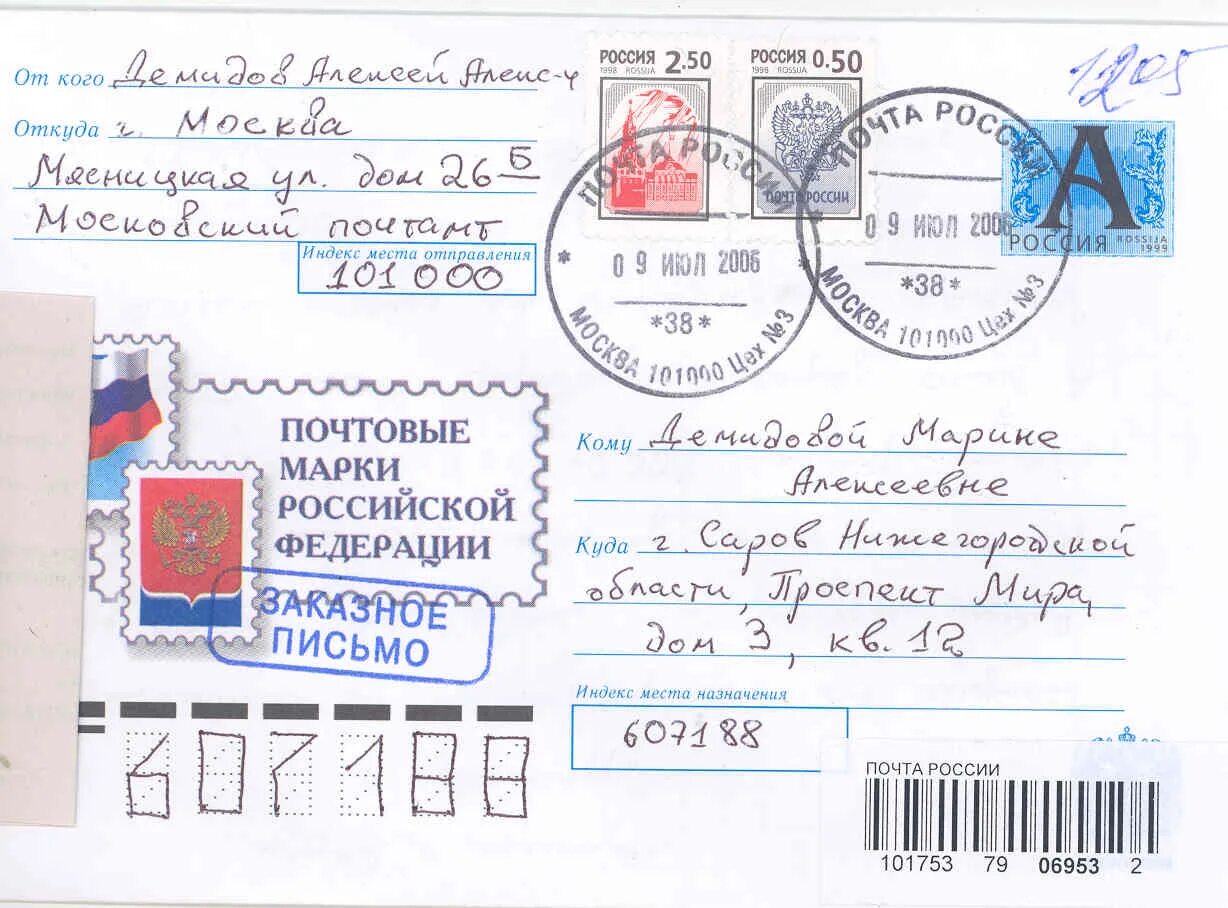 От кого Демидов Алексей Алекс-ч
Откуда г. Москва
Мясницкая ул. дом 26 Б
Московский почтамт
Индекс места отправления
101000
РОССИЯ 2.50
1998 ROSSIJA
РОССИЯ 0.50
1998 ROSSIJA
ПОЧТА РОССИИ
А
РОССИЯ ROSSIJA
1999
ПОЧТА РОССИИ
09 ИЮЛ 2006
*38*
МОСКВА 101000 Цех №3
ПОЧТА РОССИИ
09 ИЮЛ 2006
*38*
МОСКВА 101000 Цех №3
ПОЧТОВЫЕ
МАРКИ
РОССИЙСКОЙ
ФЕДЕРАЦИИ
ЗАКАЗНОЕ
ПИСЬМО
Кому Демидовой Марине
Алексеевне
Куда г. Саров Нижегородской
области, Проспект Мира,
дом 3, кв. 12
Индекс места назначения
607188
607188
ПОЧТА РОССИИ
101753 79 06953 2